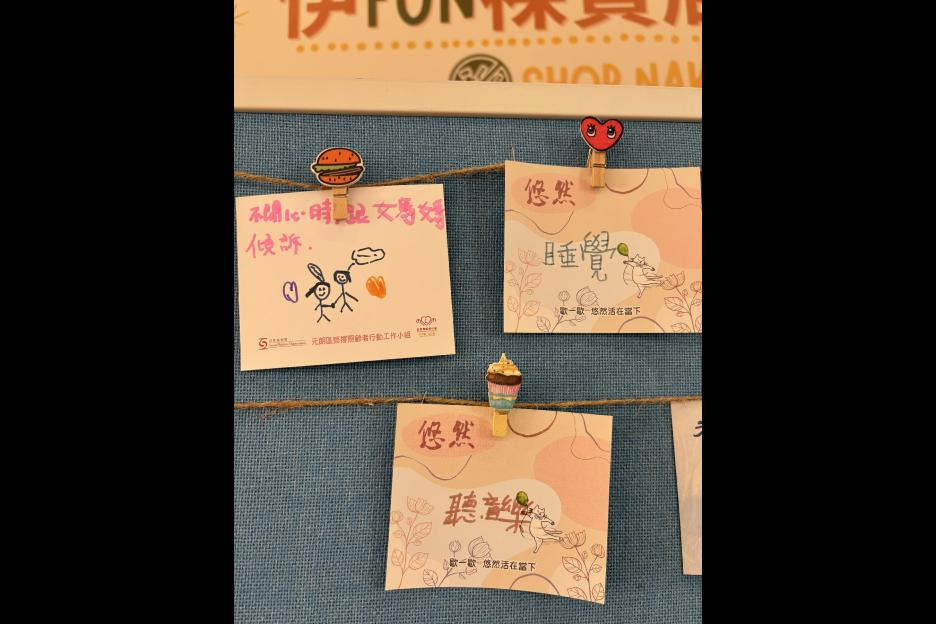 伊FUN裸買店
SHOP NAK
不開心時跟文馬媽
傾訴.
元朗區愛撐照顧者行動工作小組
悠然
睡覺
歇一歇 悠然活在當下
悠然
聽音樂
歇一歇 悠然活在當下